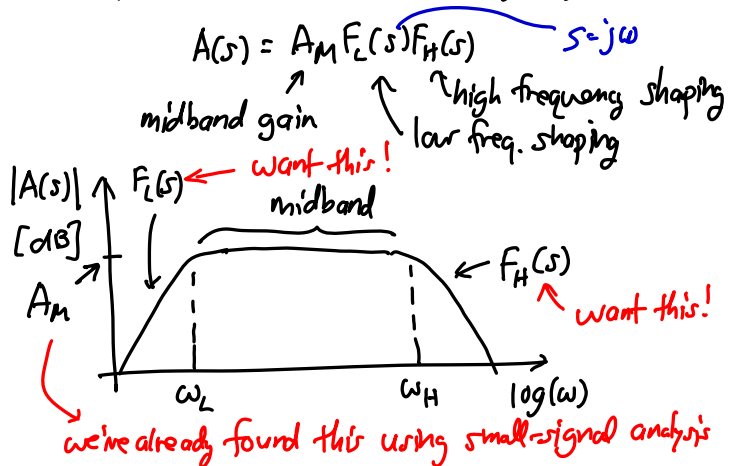 A(s) = A_M F_L(s) F_H(s)
s=jω
midband gain
high frequency shaping
low freq. shaping
want this!
|A(s)|
[dB]
F_L(s)
midband
A_M
F_H(s)
want this!
ω_L
ω_H
log(ω)
we've already found this using small-signal analysis